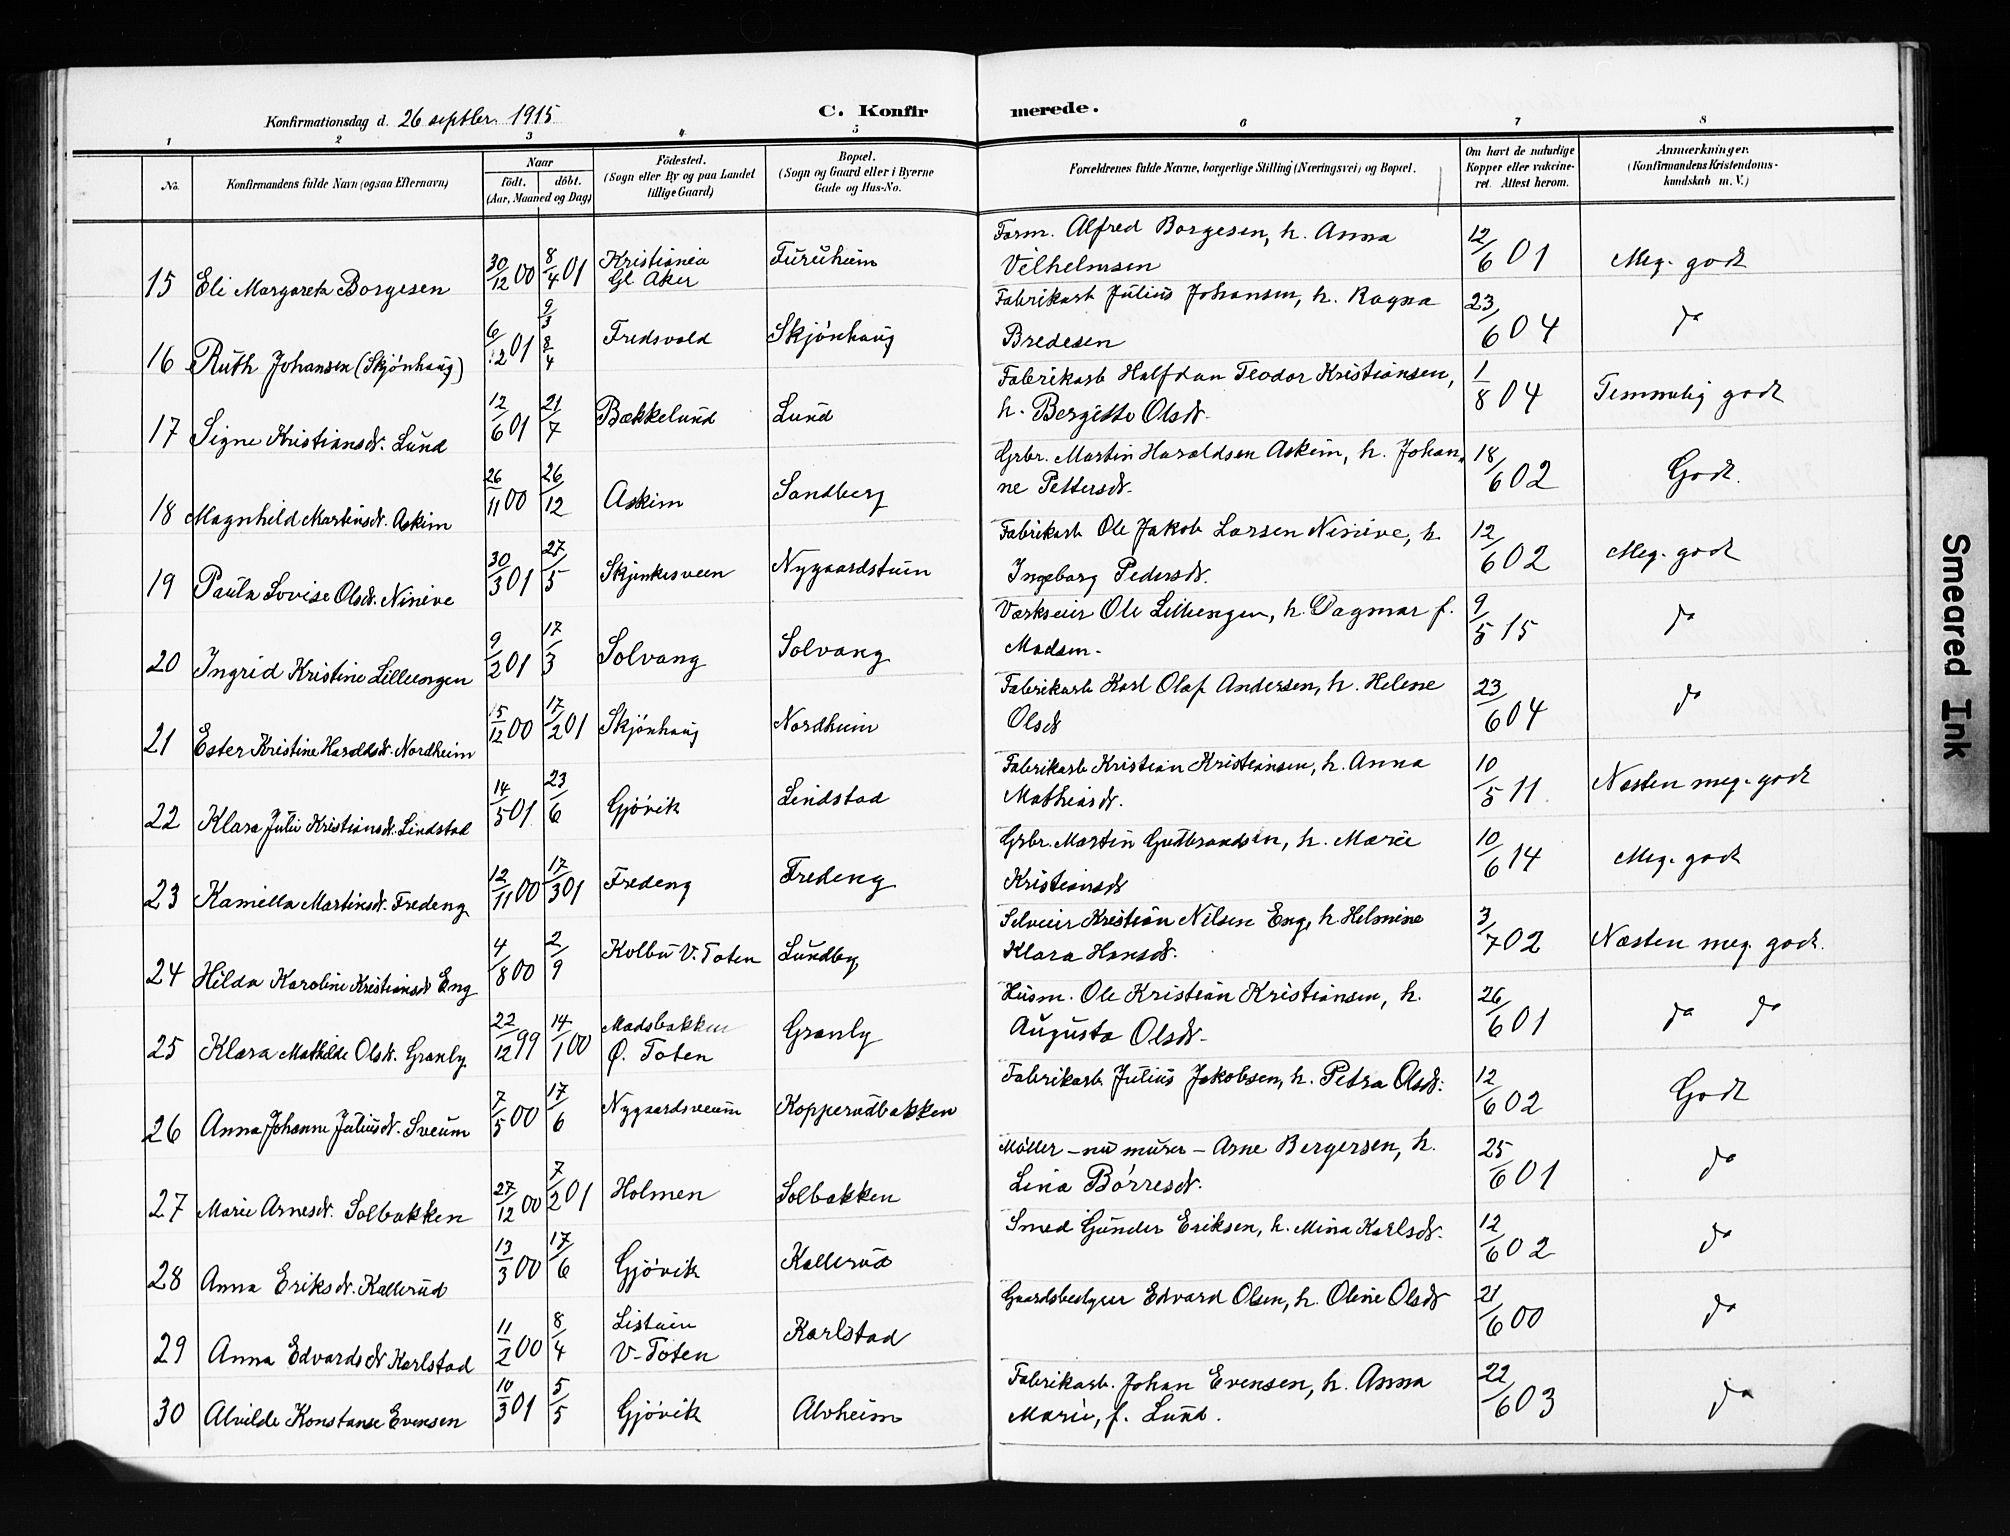 Konfirmationsdag d. 26 septbr. 1915
C. Konfirmerede.
1 2 3 4 5 6 7 8
No.
Konfirmandens fulde Navn (og saa Efternavn)
Naar
födt. döbt.
(Aar, Maaned og Dag)
Födested.
(Sogn eller By og paa Landet
tillige Gaard)
Bopæl.
(Sogn og Gaard eller i Byerne
Gade og Hus-No.
Forældrenes fulde Navne, borgerlige Stilling (Næringsvei) og Bopæl.
Om havt de naturlige
Kopper eller vakcine-
ret. Attest herom.
Anmærkninger.
(Konfirmandens Kristendoms-
kundskab m. V.)
15 Eli Margareta Borgesen 30/12 00 8/4 01 Kristiania Gl. Aker Furuheim Form. Alfred Borgesen, h. Anna
Vilhelmsen 12/6 01 Meg. godt
16 Ruth Johansen (Skjönhaug) 6/12 01 9/3 8/4 Fredsvold Skjönhaug Fabrikarb Julius Johansen, h. Ragna
Bredesen 23/6 04 do
17 Signe Kristiansdt. Lund 12/6 01 21/7 Bækkelund Lund Fabrikarb Halfdan Teodor Kristiansen,
h. Bergitte Olsdt. 1/8 04 Temmelig godt
18 Magnhild Martinsdt. Askim 26/11 00 26/12 Askim Sandberg Grbr. Martin Haraldsen Askim, h. Johan-
ne Pettersdt. 18/6 02 Godt.
19 Paula Lovise Olsdt. Ninive 30/3 01 27/5 Skjenkesveen Nygaardstuen Fabrikarb Ole Jakob Larsen Ninive, h.
Ingeborg Pedersdt. 12/6 02 Meg. godt
20 Ingrid Kristine Lilleengen 9/2 01 17/3 Solvang Solvang Værkseier Ole Lilleengen, h. Dagmar f.
Madsen. 9/5 15 do
21 Ester Kristine Haraldsdt. Nordheim 15/12 00 17/2 01 Skjönhaug Nordheim Fabrikarb Karl Olaf Andersen, h. Helene
Olsdt 23/6 04 do
22 Klara Julie Kristiansdt. Lindstad 14/5 01 23/6 Gjövik Lindstad Fabrikarb Kristian Kristiansen, h. Anna
Mathiasdt. 10/5 11 Næsten meg. godt
23 Kamilla Martinsdt. Fredeng 12/11 00 17/3 01 Fredeng Fredeng Grbr. Martin Gudbrandsen, h. Marie
Kristiansdt 10/6 14 Meg. godt
24 Hilda Karoline Kristiansdt Eng 4/8 00 2/9 Kolbu V. Toten Lundby Selveier Kristian Nilsen Eng, h Helmine
Klara Hansdt. 3/7 02 Næsten meg. godt.
25 Klara Mathilde Olsdt. Granly. 22/12 99 14/1 00 Madsbakken Ø. Toten Granly Husm. Ole Kristian Kristiansen, h.
Augusta Olsdt. 26/6 01 do do
26 Anna Johanne Juliusdt. Sveum 7/5 00 17/6 Nygaardsveum Kopperudbakken Fabrikarb. Julius Jakobsen, h. Petra Olsdt. 12/6 02 Godt
27 Marie Arnesdt. Solbakken 27/12 00 7/2 01 Holmen Solbakken Möller - nu murer - Arne Bergersen, h.
Lina Börresdt. 25/6 01 do
28 Anna Eriksdt. Kallerud 13/3 00 17/6 Gjövik Kallerud Smed Gunder Eriksen, h. Mina Karlsdt. 12/6 02 do
29 Anna Edvardsdt Karlstad 11/2 00 8/4 Listuen V-Toten Karlstad Gaardsbestyrer Edvard Olsen, h. Oline Olsdt 21/6 00 do
30 Alvilde Konstanse Evensen 10/3 01 5/5 Gjövik Alvheim Fabrikarb. Johan Evensen, h. Anna
Marie, f. Lund. 22/6 03 do
Smeared Ink